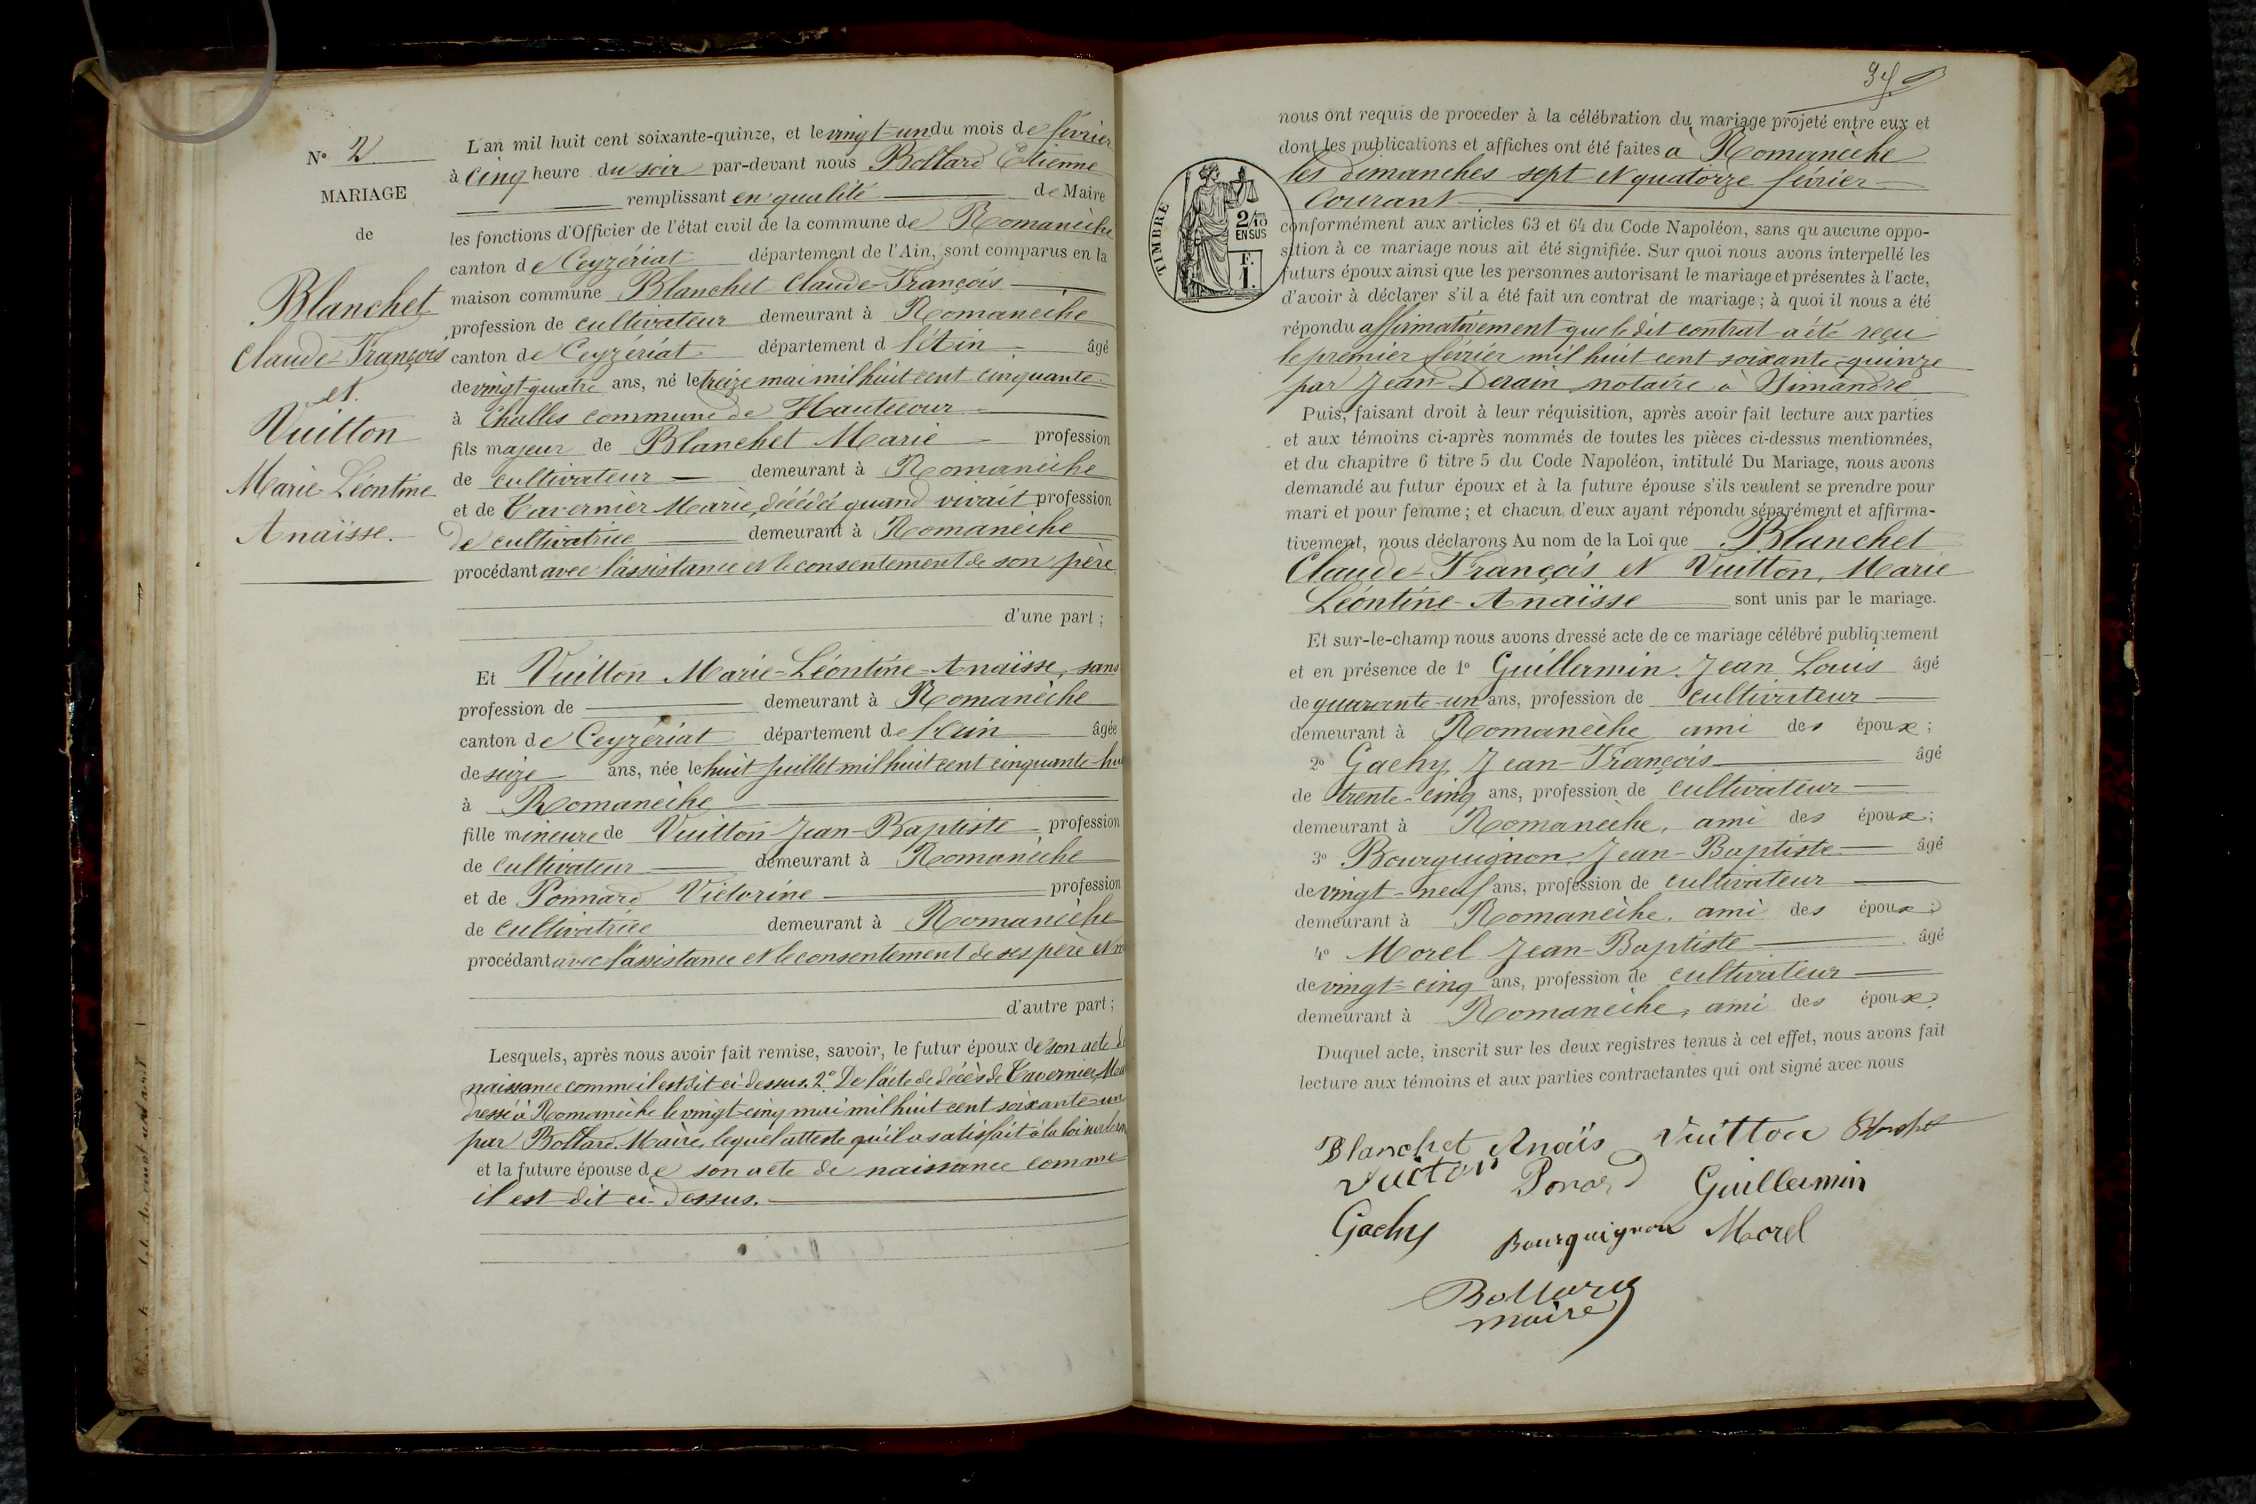 N° 2
MARIAGE
de
Blanchet
Claude-François
et
Vuitton
Marie-Léontine
Anaïsse.
L'an mil huit cent soixante-quinze, et le vingt-un du mois de février
à cinq heure du soir par-devant nous Bollard Etienne
remplissant en qualité de Maire
les fonctions d'Officier de l'état civil de la commune de Romanèche
canton de Ceyzériat département de l'Ain, sont comparus en la
maison commune Blanchet Claude-François
profession de cultivateur demeurant à Romanèche
canton de Ceyzériat département d l'Ain âgé
de vingt-quatre ans, né le treize mai mil huit cent cinquante
à Challes commune de Hautecour
fils majeur de Blanchet Marie profession
de cultivateur demeurant à Romanèche
et de Tavernier Marie, décédé quand vivait profession
de cultivatrice demeurant à Romanèche
procédant avec l'assistance et le consentement de son père
d'une part ;
Et Vuitton Marie-Léontine-Anaïsse, sans
profession de demeurant à Romanèche
canton de Ceyzériat département de l'Ain âgée
de seize ans, née le huit juillet mil huit cent cinquante-hui
à Romanèche
fille mineure de Vuitton Jean-Baptiste profession
de cultivateur demeurant à Romanèche
et de Ponnard Victorine profession
de cultivatrice demeurant à Romanèche
procédant avec l'assistance et le consentement de ses père et
d'autre part ;
Lesquels, après nous avoir fait remise, savoir, le futur époux de son acte de
naissance comme il est dit ci-dessus. 2° De l'acte de décès de Tavernier Mari
dressé à Romanèche le vingt-cinq mai mil huit cent soixante-un
par Bollard, Maire, lequel atteste qu'il a satisfait à la loi sur le
et la future épouse de son acte de naissance comme
il est dit ci-dessus.
TIMBRE
2/10
EN SUS
F.
1.
nous ont requis de procéder à la célébration du mariage projeté entre eux et
dont les publications et affiches ont été faites à Romanèche
les dimanches sept et quatorze février
courant
conformément aux articles 63 et 64 du Code Napoléon, sans qu'aucune oppo-
sition à ce mariage nous ait été signifiée. Sur quoi nous avons interpellé les
futurs époux ainsi que les personnes autorisant le mariage et présentes à l'acte,
d'avoir à déclarer s'il a été fait un contrat de mariage ; à quoi il nous a été
répondu affirmativement que le dit contrat a été reçu
le premier février mil huit cent soixante-quinze
par Jean Derain notaire à Simandre
Puis, faisant droit à leur réquisition, après avoir fait lecture aux parties
et aux témoins ci-après nommés de toutes les pièces ci-dessus mentionnées,
et du chapitre 6 titre 5 du Code Napoléon, intitulé Du Mariage, nous avons
demandé au futur époux et à la future épouse s'ils veulent se prendre pour
mari et pour femme ; et chacun d'eux ayant répondu séparément et affirma-
tivement, nous déclarons Au nom de la Loi que Blanchet
Claude-François et Vuitton, Marie
Léontine-Anaïsse sont unis par le mariage.
Et sur-le-champ nous avons dressé acte de ce mariage célébré publiquement
et en présence de 1° Guillermin Jean Louis âgé
de quarante-un ans, profession de cultivateur
demeurant à Romanèche ami des époux ;
2° Gachy Jean-François âgé
de trente-cinq ans, profession de cultivateur
demeurant à Romanèche, ami des époux ;
3° Bourguignon Jean-Baptiste âgé
de vingt-neuf ans, profession de cultivateur
demeurant à Romanèche, ami des époux ;
4° Morel Jean-Baptiste âgé
de vingt-cinq ans, profession de cultivateur
demeurant à Romanèche, ami des époux.
Duquel acte, inscrit sur les deux registres tenus à cet effet, nous avons fait
lecture aux témoins et aux parties contractantes qui ont signé avec nous
Blanchet Anaïs Vuitton
Vuitton Ponard Guillermin
Gachy Bourguignon Morel
Bollard
maire